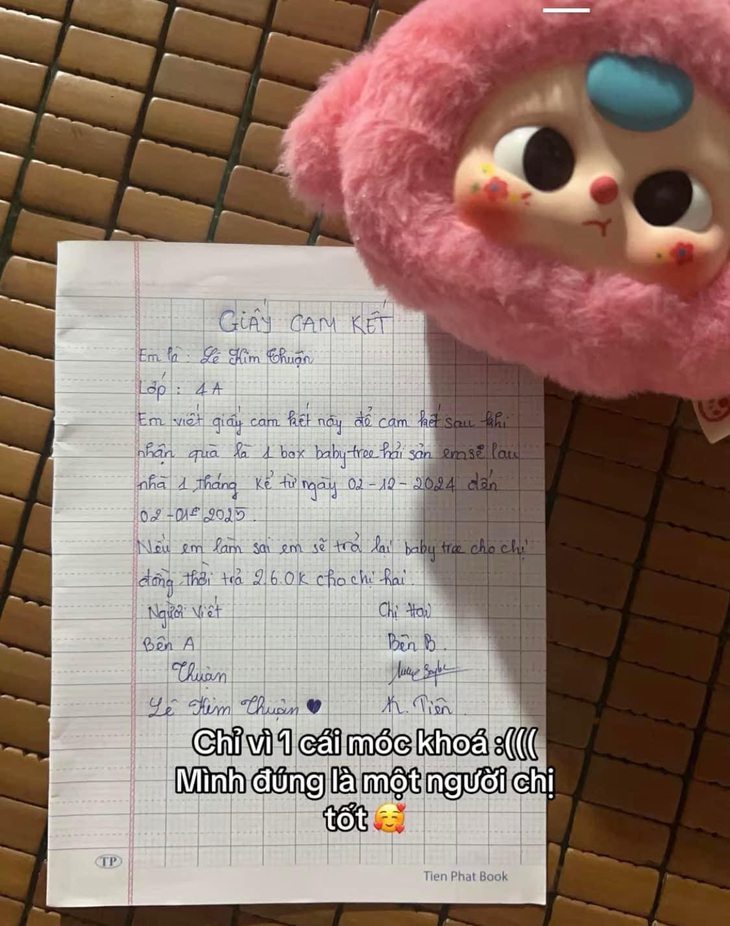 GIẤY CAM KẾT
Em là : Lê Kim Thuận
Lớp : 4A
Em viết giấy cam kết này để cam kết sau khi
nhận quà là 1 box baby tree hải sản em sẽ lau
nhà 1 tháng kể từ ngày 02-12-2024 đến
02-01-2025.
Nếu em làm sai em sẽ trả lại baby tree cho chị
đồng thời trả 260k cho chị hai.
Người viết Chị Hai
Bên A Bên B.
Thuận
Lê Kim Thuận 🖤 K. Tiên
Chỉ vì 1 cái móc khoá :((((
Mình đúng là một người chị
tốt 🥰
TP
Tien Phat Book